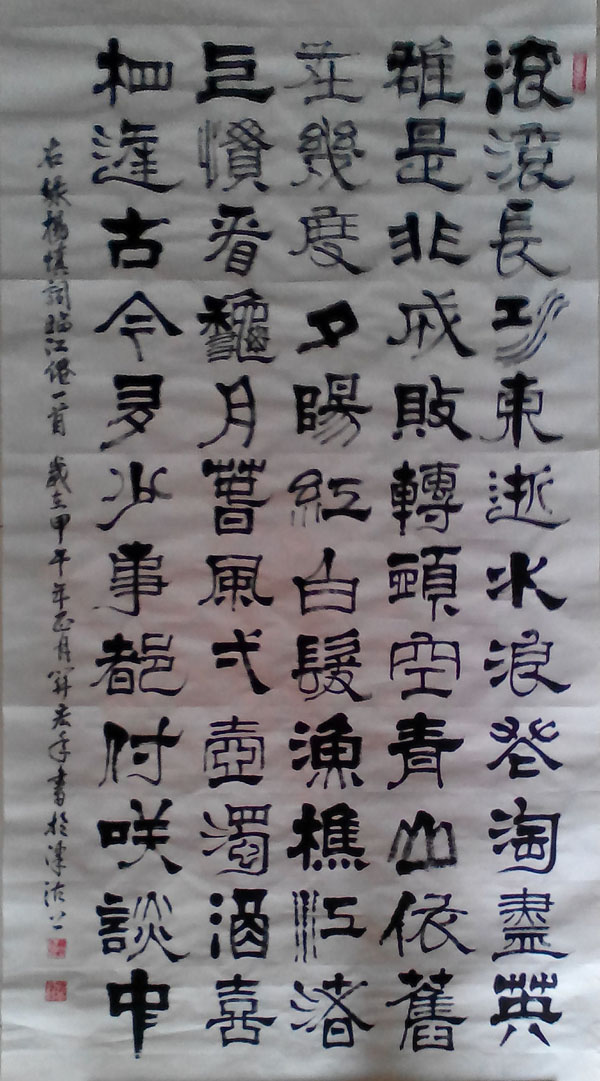 滾滾長江東逝水浪花淘盡英
雄是非成敗轉頭空青山依舊
在幾度夕陽紅白髮漁樵江渚
上慣看龝月萅風弌壺濁酒喜
相逢古今多少事都付咲談中
右錄楊慎詞臨江僊一首 歲在甲午年正月 書於津沽上